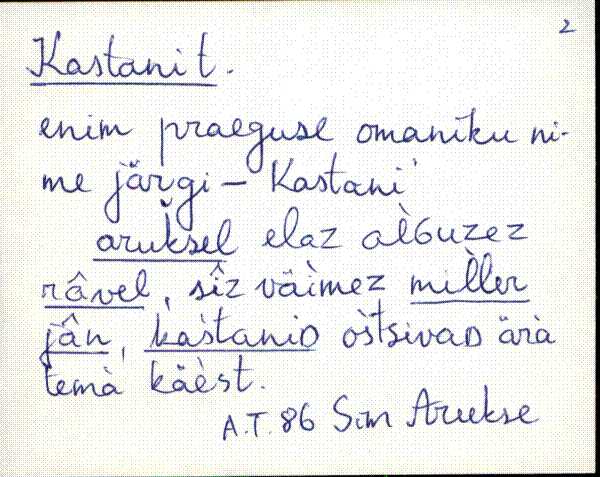 2
Kastani t.
enim praeguse omaniku ni-
me järgi – Kastani
aruksel elaz al̀ɢuzez
râvel, sîz väìmez mìller
jân, kas̀taniᴅ os̀tsivaᴅ ärà
temà käès̀t.
A.T. 86 Sim Arukse